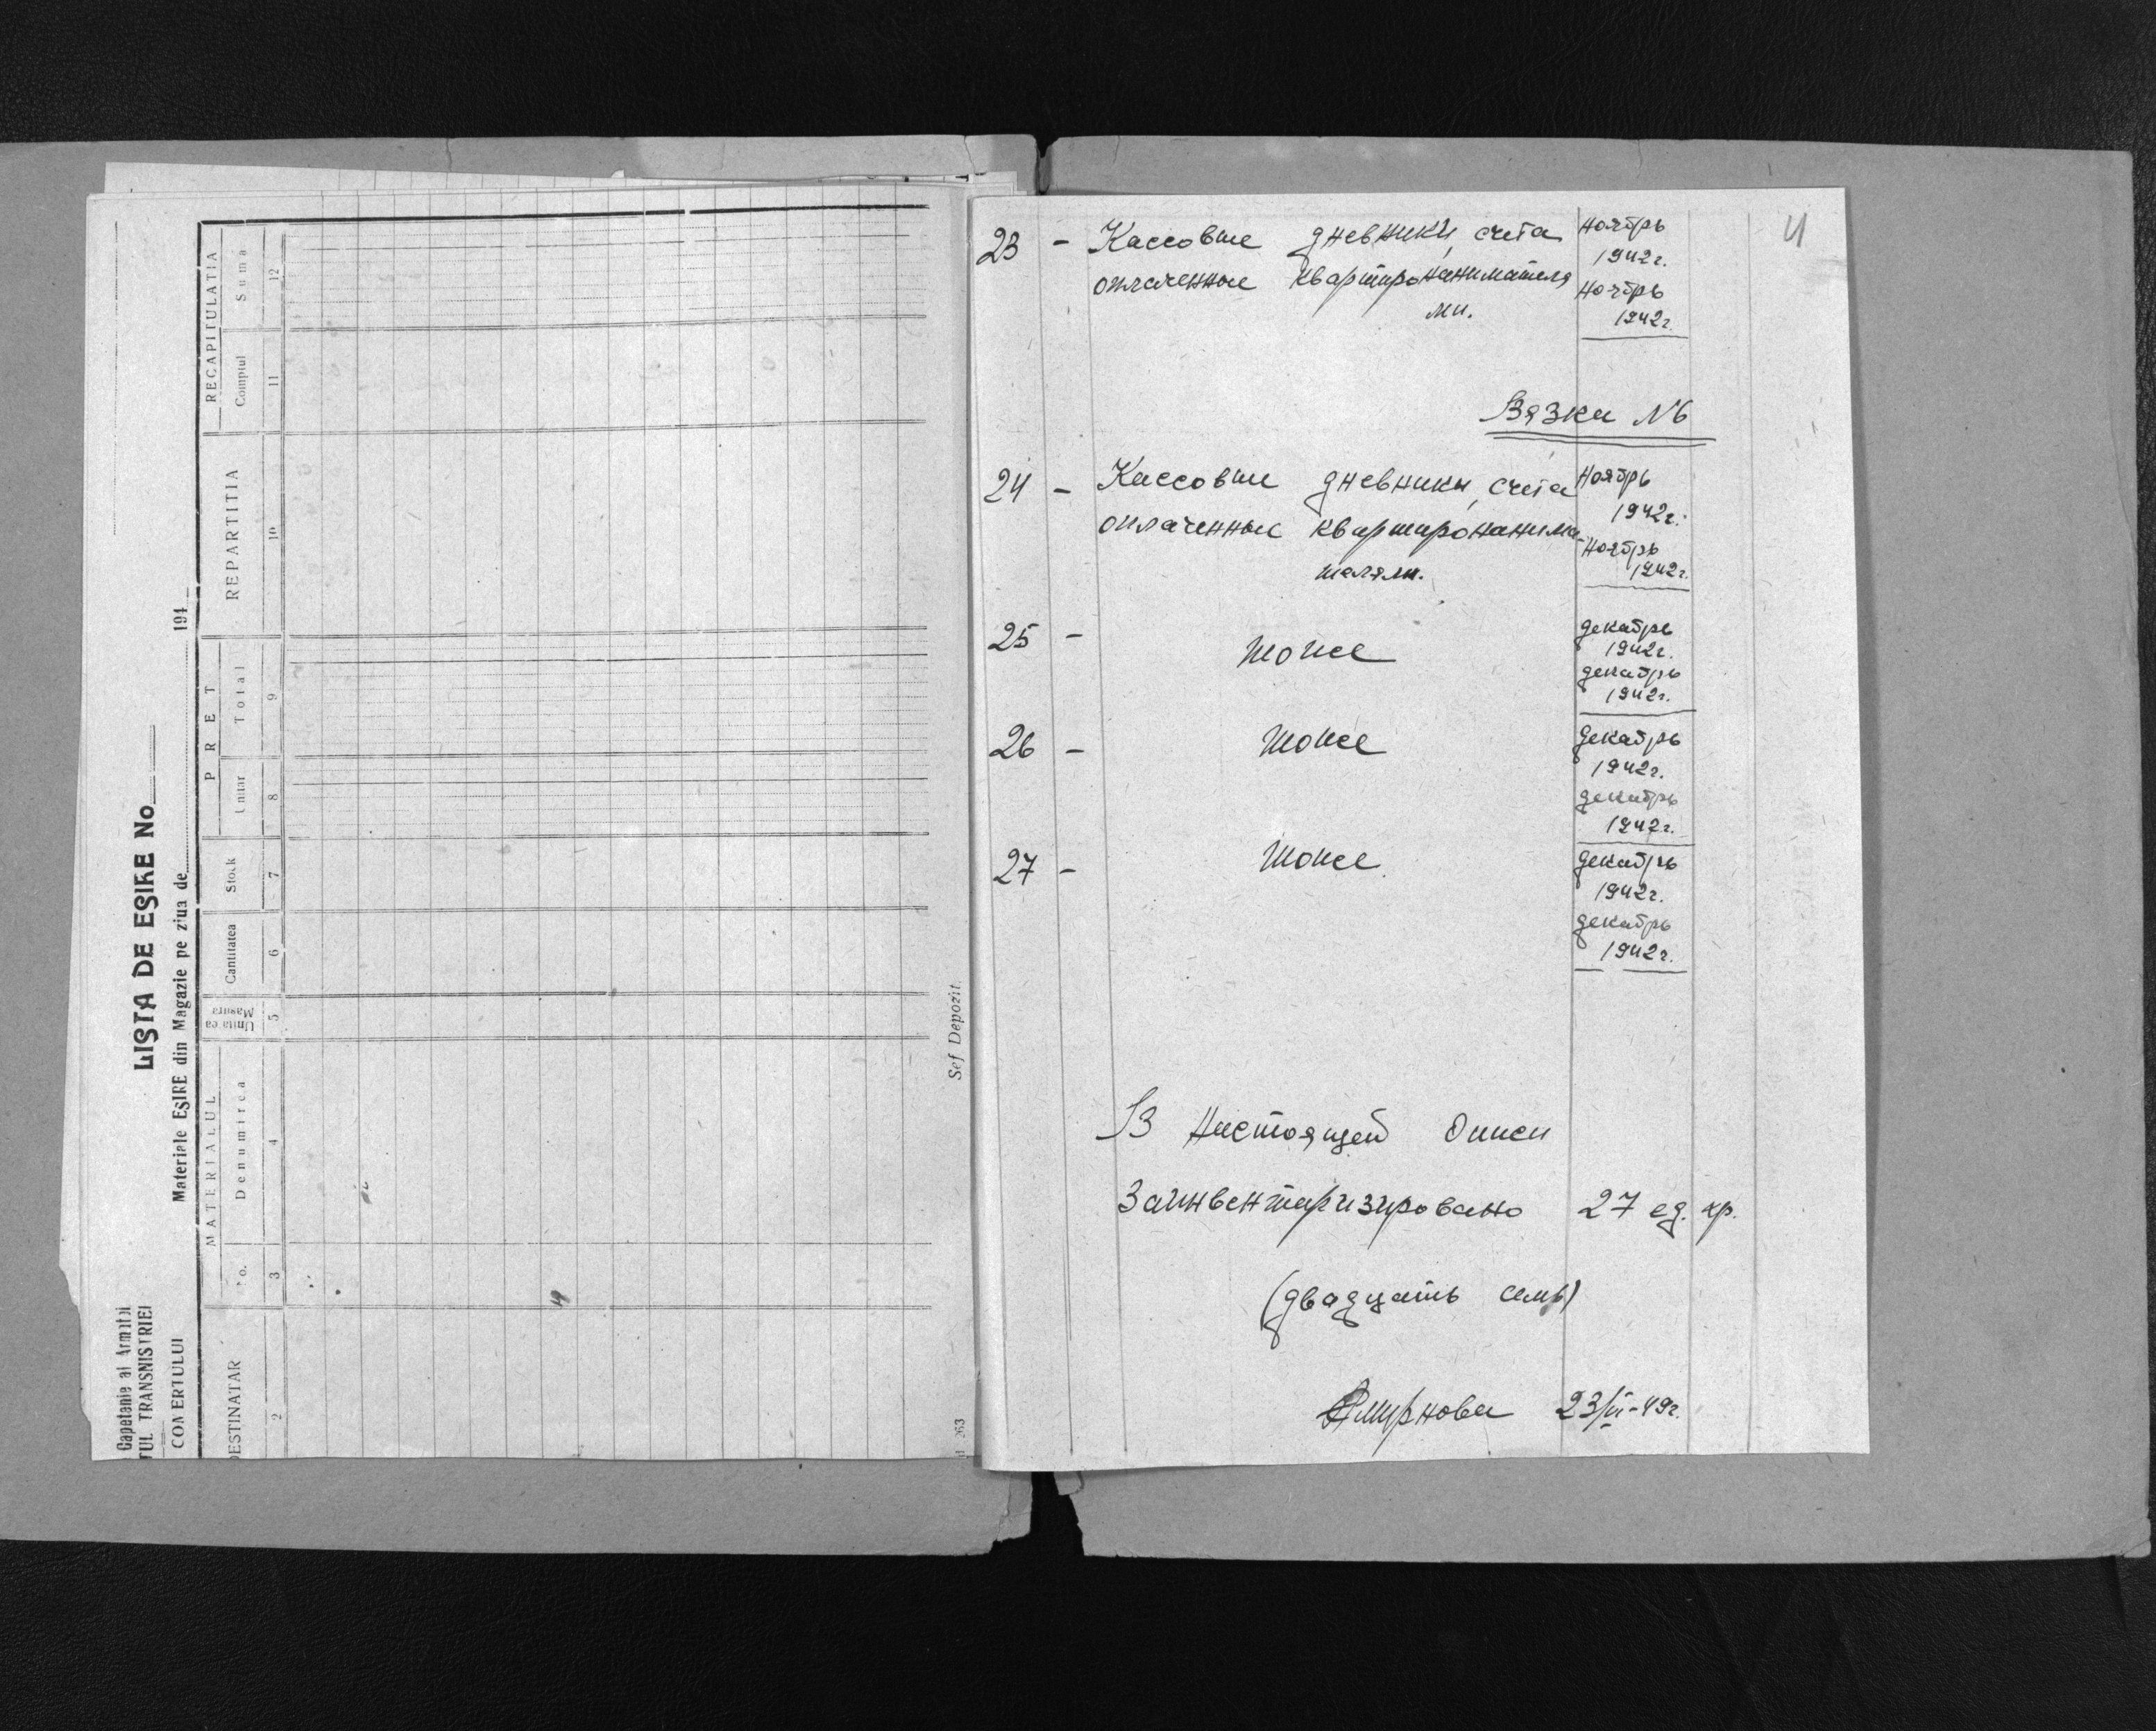 Capetanie al Armatei
TUL TRANSNISTRIEI
CON ERTULUI
LISTA DE EȘIRE No
Materiale EȘIRE din Magazie pe ziua de 194
DESTINATAR
MATERIALUL
No.
Denumirea
Unitatea Masura
Cantitatea
Stock
PRET
Unitar
Total
REPARTITIA
RECAPITULATIA
Comptul
Suma
2 3 4 5 6 7 8 9 10 11 12
Sef Depozit
263
4
23 - Кассовые дневники, счета ноябрь
1942г.
оплаченные квартиронанимателя ноябрь
ми. 1942г.
Вязка №6
24 - Кассовые дневники, счета ноябрь
1942г.
оплаченные квартиронанима- ноябрь
телями. 1942г.
25 - тоже декабрь
1942г.
декабрь
1942г.
26 - тоже декабрь
1942г.
декабрь
1942г.
27 - тоже декабрь
1942г.
декабрь
1942г.
В настоящей описи
заинвентаризировано 27 ед. хр.
(двадцать семь)
Смирнова 23/VI-49г.